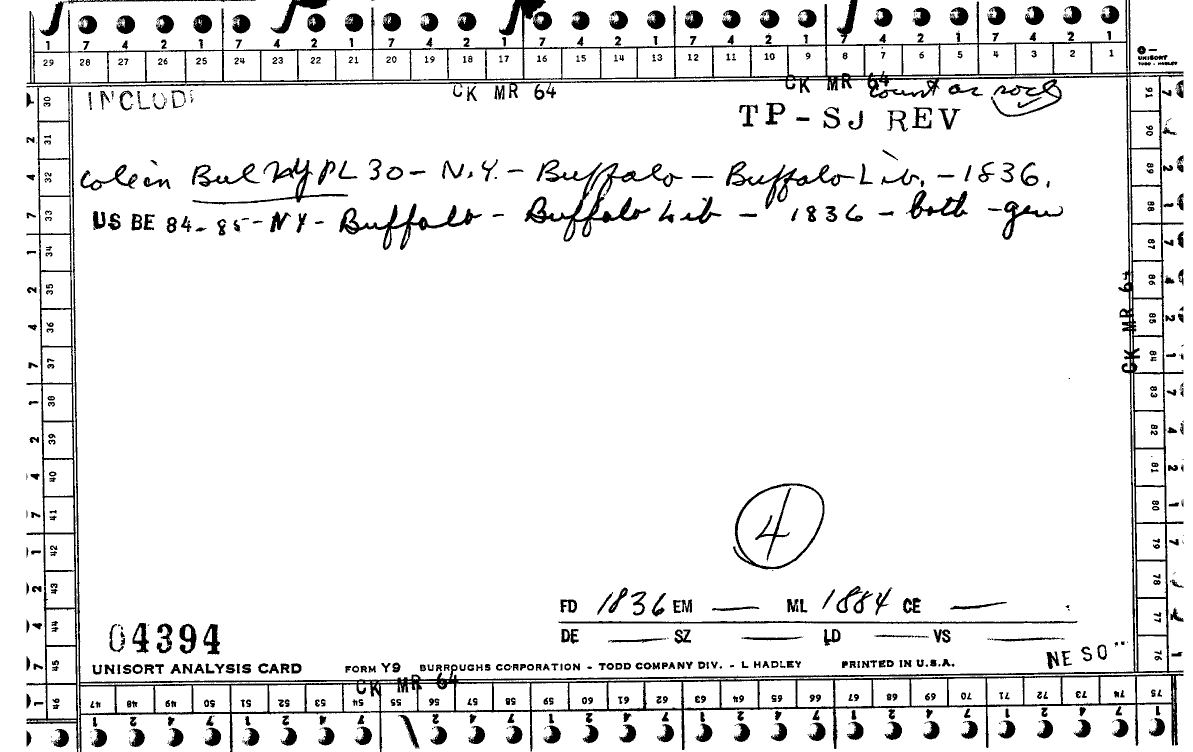 1 7 4 2 1 7 4 2 1 7 4 2 1 7 4 2 1 7 4 2 1 7 4 2 1 7 4 2 1
29 28 27 26 25 24 23 22 21 20 19 18 17 16 15 14 13 12 11 10 9 8 7 6 5 4 3 2 1
UNISORT
TODD - HADLEY
INCLUD
CK MR 64
CK MR 64
Count as socl
TP-SJ REV
Bul NYPL 30 - N.Y. - Buffalo - Buffalo Lib. - 1836.
US BE 84-85-NY- Buffalo - Buffalo Lib - 1836 - both - gen
30 31 32 33 34 35 36 37 38 39 40 41 42 43 44 45 46
91 90 89 88 87 86 85 84 83 82 81 80 79 78 77 76
CK MR 64
4
FD 1836 EM — ML 1884 CE —
DE — SZ — LD — VS —
04394
NE SO
UNISORT ANALYSIS CARD FORM Y9 BURROUGHS CORPORATION - TODD COMPANY DIV. - L HADLEY PRINTED IN U.S.A.
CK MR 64
47 48 49 50 51 52 53 54 55 56 57 58 59 60 61 62 63 64 65 66 67 68 69 70 71 72 73 74 75